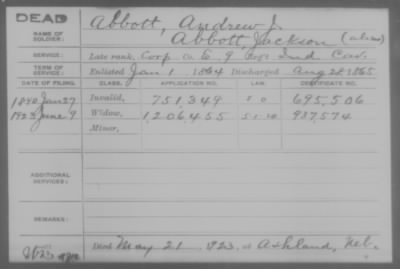 DEAD
NAME OF SOLDIER: Abbott, Andrew J.
Abbott, Jackson (alias)
SERVICE: Late rank, Corp Co. G, 9 Reg't Ind Cav.
TERM OF SERVICE: Enlisted Jan 1, 1864 Discharged Aug 28 1865
DATE OF FILING. CLASS. APPLICATION NO. LAW. CERTIFICATE NO.
1890 Jan 27 Invalid, 751,349 695,506
1923 June 9 Widow, 1,206,455 987,574
Minor,
ADDITIONAL SERVICES:
REMARKS:
Died May 21, 1923, at Ashland, Neb.